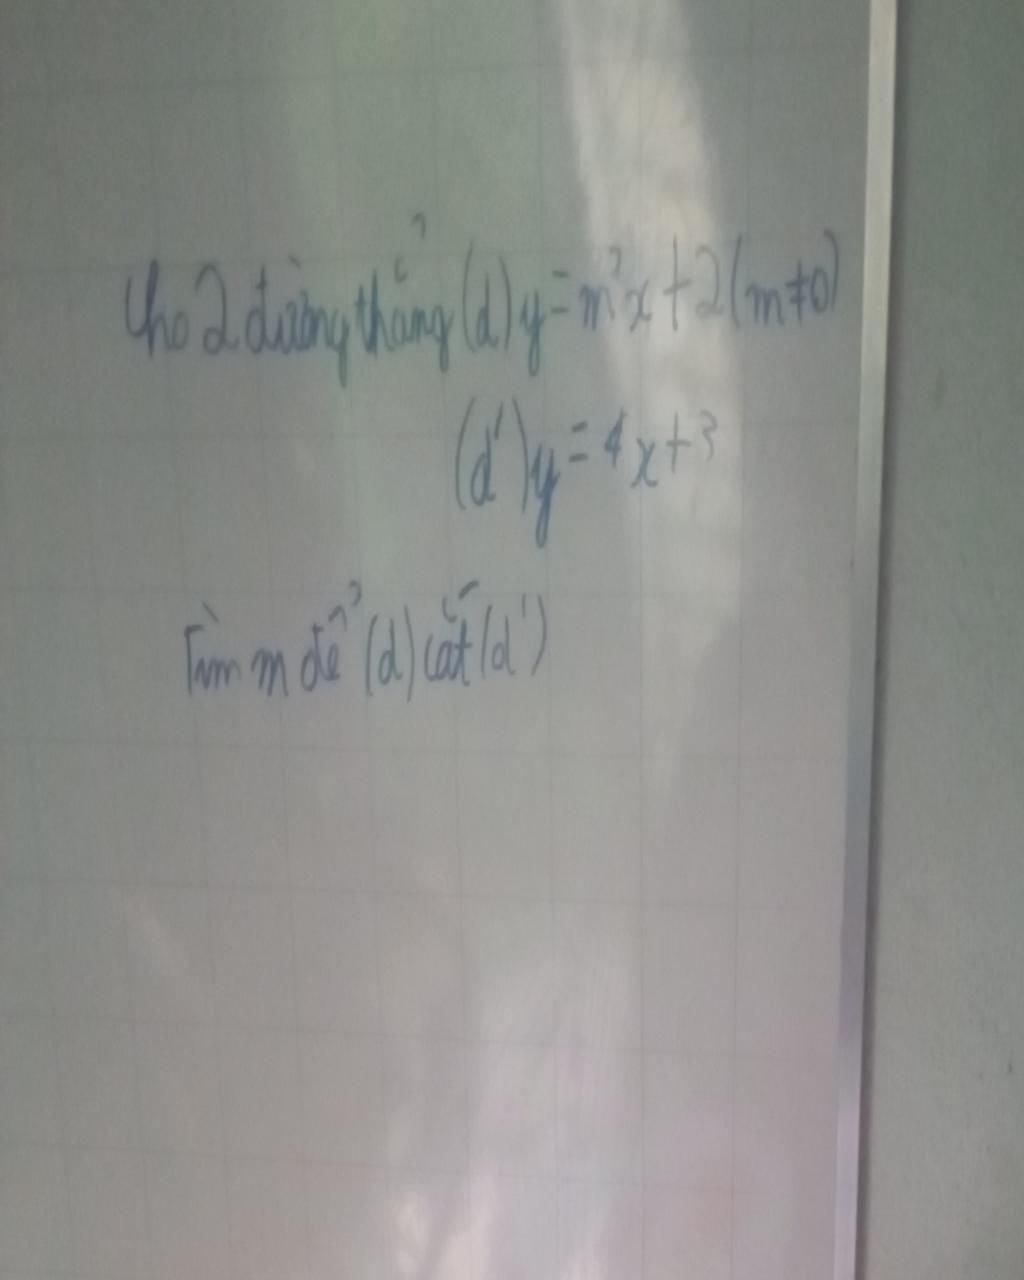 Cho 2 đường thẳng (d) y = m²x + 2 (m ≠ 0)
(d') y = 4x + 3
Tìm m để (d) cắt (d')